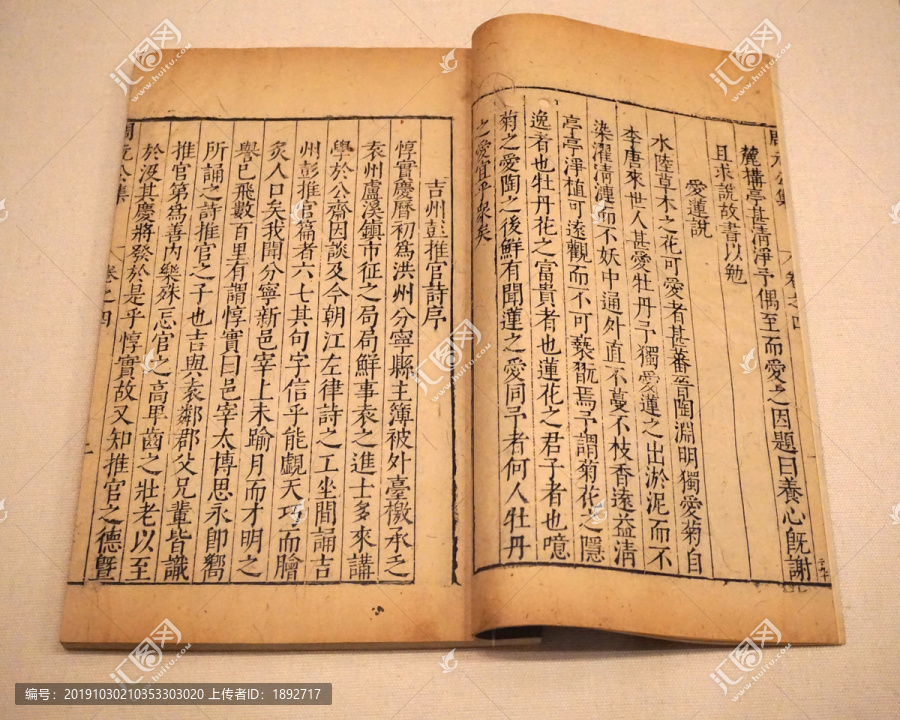 周元公集 卷之四
麓構亭甚清淨予偶至而愛之因題曰養心既謝
且求說故書以勉
愛蓮說
水陸草木之花可愛者甚蕃晉陶淵明獨愛菊自
李唐來世人甚愛牡丹予獨愛蓮之出淤泥而不
染濯清漣而不妖中通外直不蔓不枝香遠益清
亭亭淨植可遠觀而不可褻翫焉予謂菊花之隱
逸者也牡丹花之富貴者也蓮花之君子者也噫
菊之愛陶之後鮮有聞蓮之愛同予者何人牡丹
之愛宜乎衆矣
吉州彭推官詩序
惇實慶曆初爲洪州分寧縣主簿被外臺檄承乏
袁州盧溪鎮市征之局局鮮事袁之進士多來講
學於公齋因談及今朝江左律詩之工坐間誦吉
州彭推官篇者六七其句字信乎能覷天巧而膾
炙人口矣我聞分寧新邑宰上未踰月而才明之
譽已飛數百里有謂惇實曰邑宰太博思永卽嚮
所誦之詩推官之子也吉與袁鄰郡父兄輩皆識
推官第爲善內樂殊忘官之高卑齒之壯老以至
於沒其慶將發於是乎惇實故又知推官之德曁
周元公集 卷之四
汇图网
www.huitu.com
编号：20191030210353303020 上传者ID：1892717